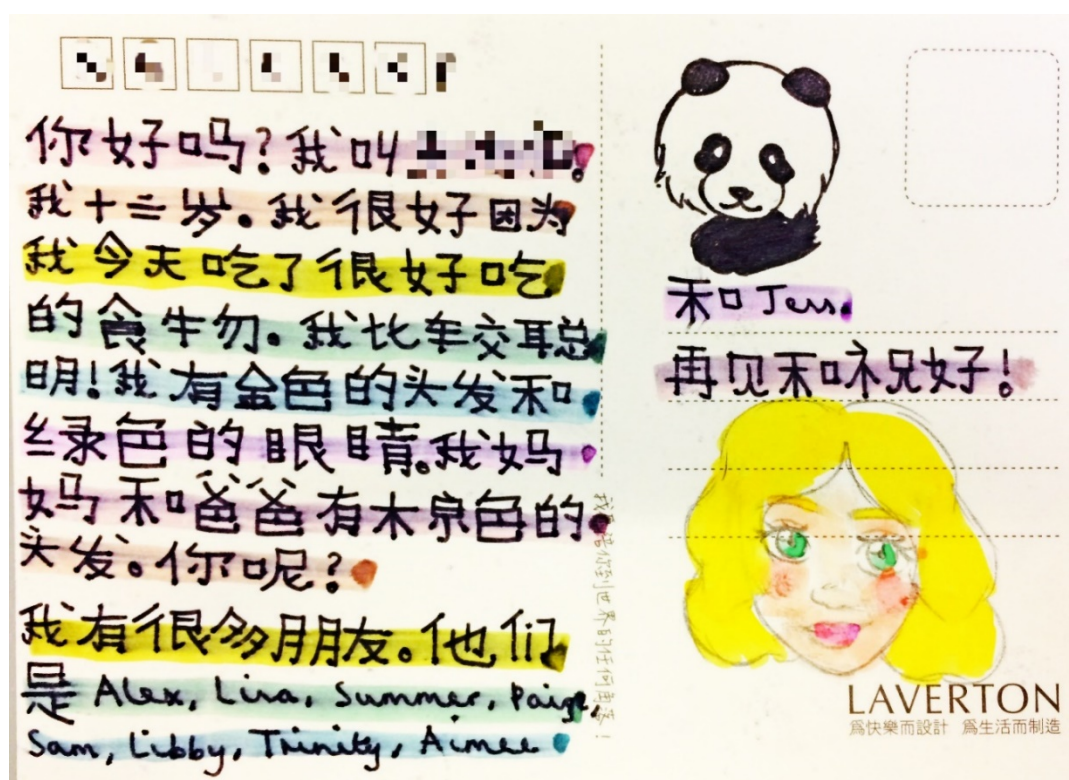 你好吗？我叫
我十三岁。我很好因为
我今天吃了很好吃
的食物。我比较聪
明！我有金色的头发和
绿色的眼睛。我妈
妈和爸爸有棕色的
头发。你呢？
我有很多朋友。他们
是 Alex, Lina, Summer, Paige,
Sam, Libby, Trinity, Aimee
和 Jess.
再见和祝好！
到世界的任何角落！
LAVERTON
為快樂而設計 為生活而制造